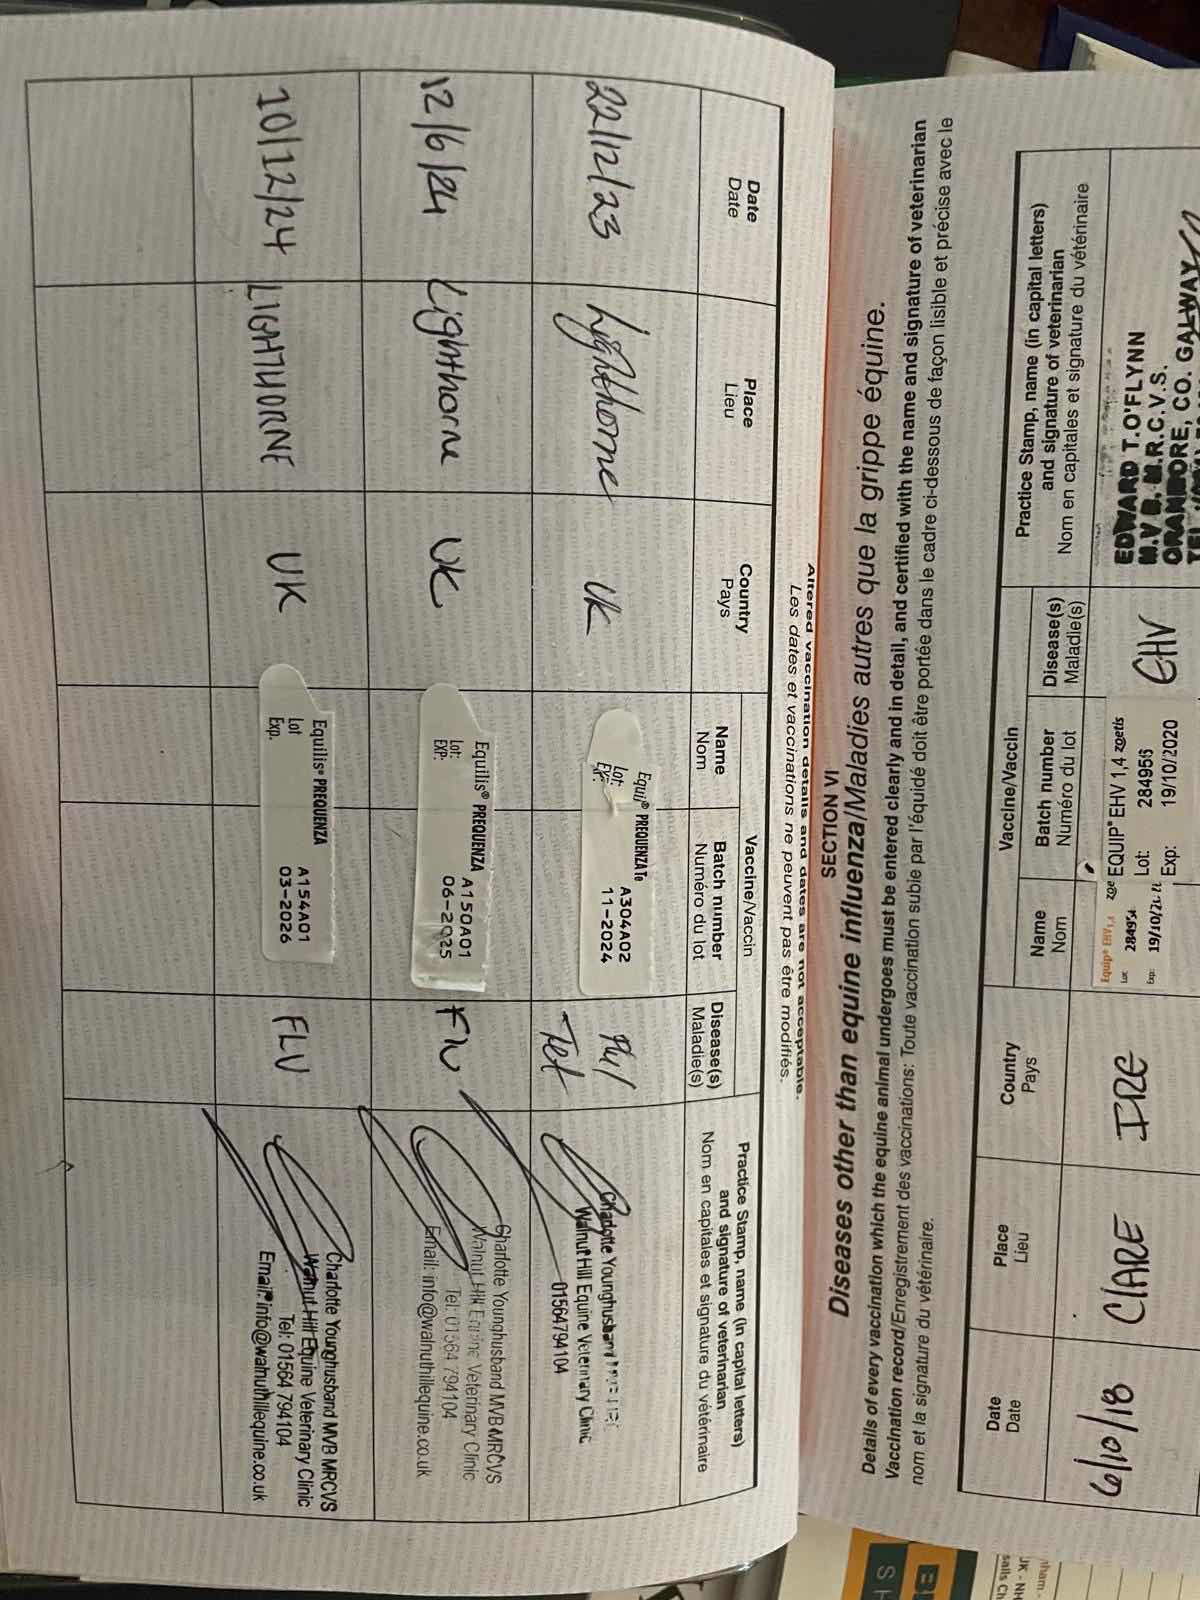 Altered vaccination details and dates are not acceptable.
Les dates et vaccinations ne peuvent pas être modifiés.
Date
Date
Place
Lieu
Country
Pays
Vaccine/Vaccin
Name
Nom
Batch number
Numéro du lot
Disease(s)
Maladie(s)
Practice Stamp, name (in capital letters)
and signature of veterinarian
Nom en capitales et signature du vétérinaire
22/12/23
Lighthorne
UK
Equil® PREQUENZA Te
Lot: A304A02
EXP: 11-2024
Flu/
Tet
Charlotte Younghusband
Walnut Hill Equine Veterinary Clinic
01564794104
12/6/24
Lighthorne
UK
Equilis® PREQUENZA
Lot: A150A01
EXP: 06-2025
Flu
Charlotte Younghusband MVB MRCVS
Walnut Hill Equine Veterinary Clinic
Tel: 01564 794104
Email: info@walnuthillequine.co.uk
10/12/24
LIGHTHORNE
UK
Equilis® PREQUENZA
Lot A154A01
Exp. 03-2026
FLU
Charlotte Younghusband MVB MRCVS
Walnut Hill Equine Veterinary Clinic
Tel: 01564 794104
Email: info@walnuthillequine.co.uk
SECTION VI
Diseases other than equine influenza/Maladies autres que la grippe équine.
Details of every vaccination which the equine animal undergoes must be entered clearly and in detail, and certified with the name and signature of veterinarian
Vaccination record/Enregistrement des vaccinations: Toute vaccination subie par l'équidé doit être portée dans le cadre ci-dessous de façon lisible et précise avec le
nom et la signature du vétérinaire.
Date
Date
Place
Lieu
Country
Pays
Vaccine/Vaccin
Name
Nom
Batch number
Numéro du lot
Disease(s)
Maladie(s)
Practice Stamp, name (in capital letters)
and signature of veterinarian
Nom en capitales et signature du vétérinaire
6/10/18
CLARE
IRE
Equip® EHV1,4
Lot: 28495
Exp: 19/10/20
EQUIP® EHV 1,4 zoetis
Lot: 284956
Exp: 19/10/2020
EHV
EDWARD T. O'FLYNN
M.V.B. M.R.C.V.S.
ORANMORE, CO. GALWAY
TEL